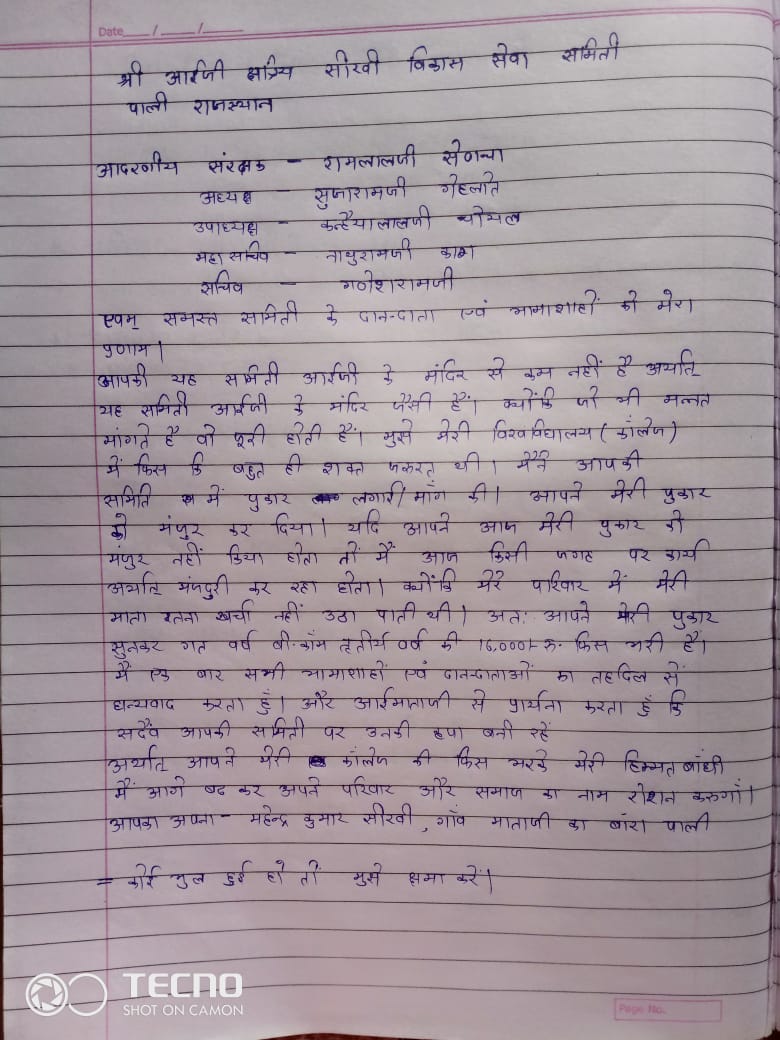 Date___/___/___
श्री आईजी क्षत्रिय सीरवी विकास सेवा समिती
पाली राजस्थान
आदरणीय संरक्षक – रामलालजी सेणचा
अध्यक्ष – सुजारामजी गेहलोत
उपाध्यक्ष – कन्हैयालालजी चोयल
महासचिव – नाथुरामजी काग
सचिव – गणेशरामजी
एवम् समस्त समिती के दान-दाता एवं भामाशाहों को मेरा
प्रणाम।
आपकी यह समिती आईजी के मंदिर से कम नहीं है अर्थात्
यह समिती आईजी के मंदिर जैसी हैं। क्योंकि जो भी मन्नत
मांगते है वो पूरी होती हैं। मुझे मेरी विश्वविद्यालय (कॉलेज)
में फिस कि बहुत ही शक्त जरूरत थी। मैंने आपकी
समिति में पुकार लगाई/माँग की। आपने मेरी पुकार
को मंजुर कर दिया। यदि आपने आज मेरी पुकार को
मंजुर नहीं किया होता तों मैं आज किसी जगह पर कार्य
अर्थात् मंजदुरी कर रहा होता। क्योंकि मेरे परिवार में मेरी
माता इतना खर्चा नहीं उठा पाती थी। अत: आपने मेरी पुकार
सुनकर गत वर्ष बी.कॉम तृतीर्य वर्ष की 16,000/- रु. फिस भरी हैं।
मैं एक बार सभी भामाशाहों एवं दान-दाताओं का तहदिल सें
धन्यवाद करता हुँ। और आईमाताजी से प्रार्थना करता हुँ कि
सदैव आपकी समिती पर उनकी कृपा बनी रहें
अर्थात् आपने मेरी कॉलेज की फिस भरके मेरी हिम्मत बांधी
मैं आगे बढ कर अपने परिवार और समाज का नाम रोशन करुगाँ।
आपका अपना – महेन्द्र कुमार सीरवी, गाँव माताजी का बांरा पाली
= कोई भुल हुई हो तों मुझे क्षमा करें।
TECNO
SHOT ON CAMON
Page No.